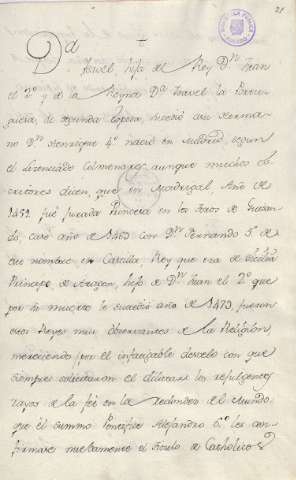 21
+
Dª
Isavel, hija del Rey Dn Juan
el 2º y de la Reyna Dª Isavel la Portu
guesa, su segunda Esposa, sucedió a su hermano
Dn Henrique 4º nació en Madrid, segun
el licenciado Colmenares aunque muchos es
critores dicen, que en Madrigal Año de
1451 fué jurada Princesa en los Toros de Guisan
do, casó año de 1469 con Dn Fernando 5º de
este nombre en Castilla Rey que era de Sicilia
Principe de Aragon, hijo de Dn Juan el 2º que
por su muerte le sucedió año de 1479, fueron
estos Reyes muy observantes de la Religion,
mereciendo por el infatigable desvelo con que
siempre solicitaron el dilatar los refulgentes
rayos de la fé en la redondez del Mundo
que el summo Pontifice Alejandro 6º les con
firmase nuebamente el titulo de Catholicos